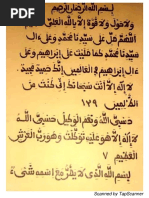 بسم الله الرحمن الرحيم
ولا حول ولا قوة إلا بالله العلى
اللهم صل على سيدنا محمد وعلى ال
سيدنا محمد كما صليت على إبراهيم وعلى
ال إبراهيم في العالمين إنك حميد مجيد
لا إله إلا أنت سبحانك إني كنت من
الظالمين ١٧٩
حسبى الله ونعم الوكيل حسبى الله
لا إله إلا هو عليه توكلت وهو رب العرش
العظيم ٧
بسم الله الذى لا يضر مع اسمه شىء
Scanned by TapScanner